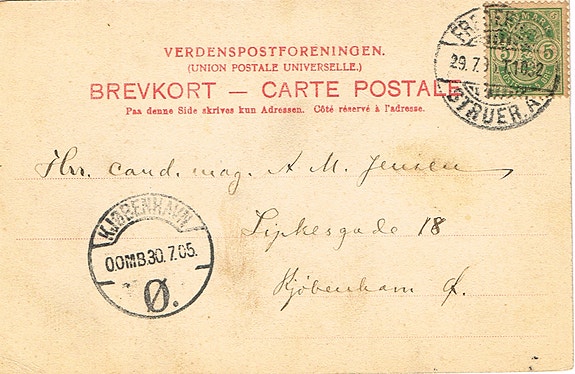 VERDENSPOSTFORENINGEN.
(UNION POSTALE UNIVERSELLE.)
BREVKORT — CARTE POSTALE
Paa denne Side skrives kun Adressen. Côté réservé à l'adresse.
5
29.7.
STRUER.
Hrr. cand. mag. A M. Jensen
Lipkesgade 18
Kjöbenhavn Ø.
KJØBENHAVN
OOMB.30.7.05.
Ø.